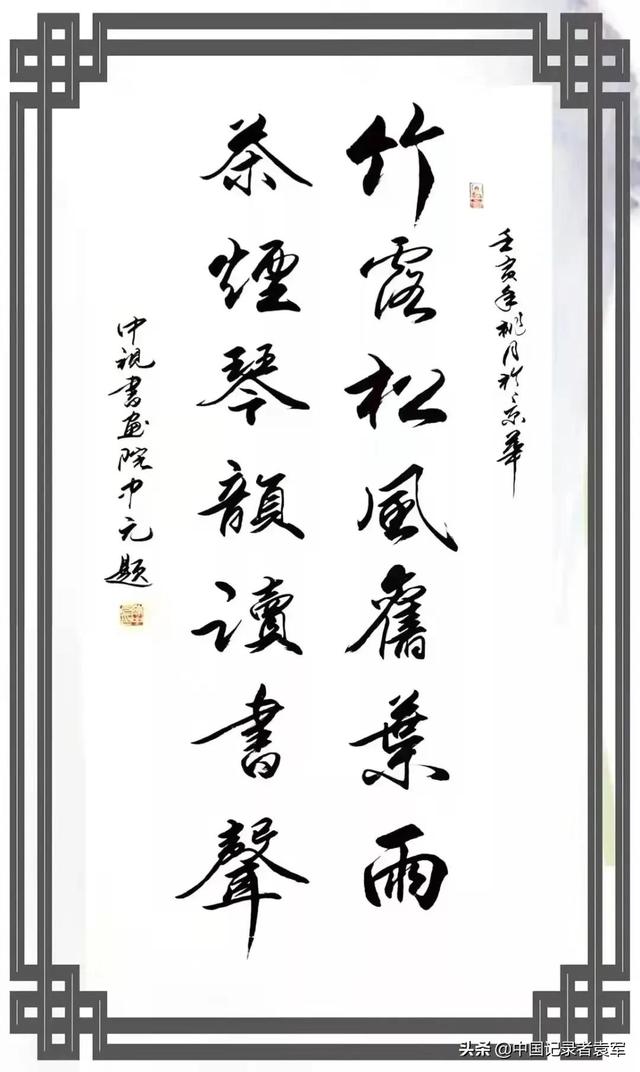 壬寅年桃月於京華
竹露松風舊葉雨
茶煙琴韻读書聲
中視書画院中元题
头条 @中国记录者袁军